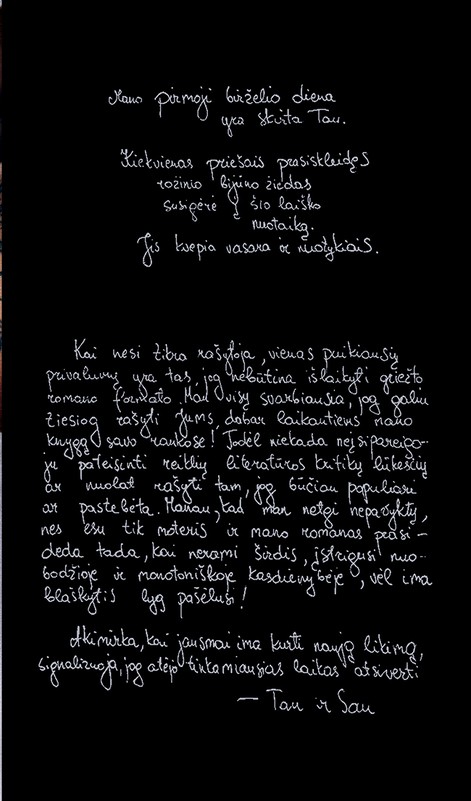 Mano pirmoji birželio diena
yra skirta Tau.
Kiekvienas priešais prasiskleidęs
rožinio bijūno žiedas
susigėrė į šio laiško
nuotaiką.
Jis kvepia vasara ir nuotykiais.
Kai nesi tikra rašytoja, vienas puikiausių
privalumų yra tas, jog nebūtina išlaikyti griežto
romano formato. Man visų svarbiausia, jog galiu
tiesiog rašyti Jums, dabar laikantiems mano
knygą savo rankose! Todėl niekada neįsipareigo-
ju pateisinti reiklių literatūros kritikų lūkesčių
ar nuolat rašyti tam, jog būčiau populiari
ar pastebėta. Manau, kad man netgi nepavyktų,
nes esu tik moteris ir mano romanas prasi-
deda tada, kai nerami širdis, įstrigusi nuo-
bodžioje ir monotoniškoje kasdienybėje, vėl ima
blaškytis lyg pašėlusi!
Akimirka, kai jausmai ima kurti naują likimą,
signalizuoja, jog atėjo tinkamiausias laikas atsiverti
— Tau ir Sau